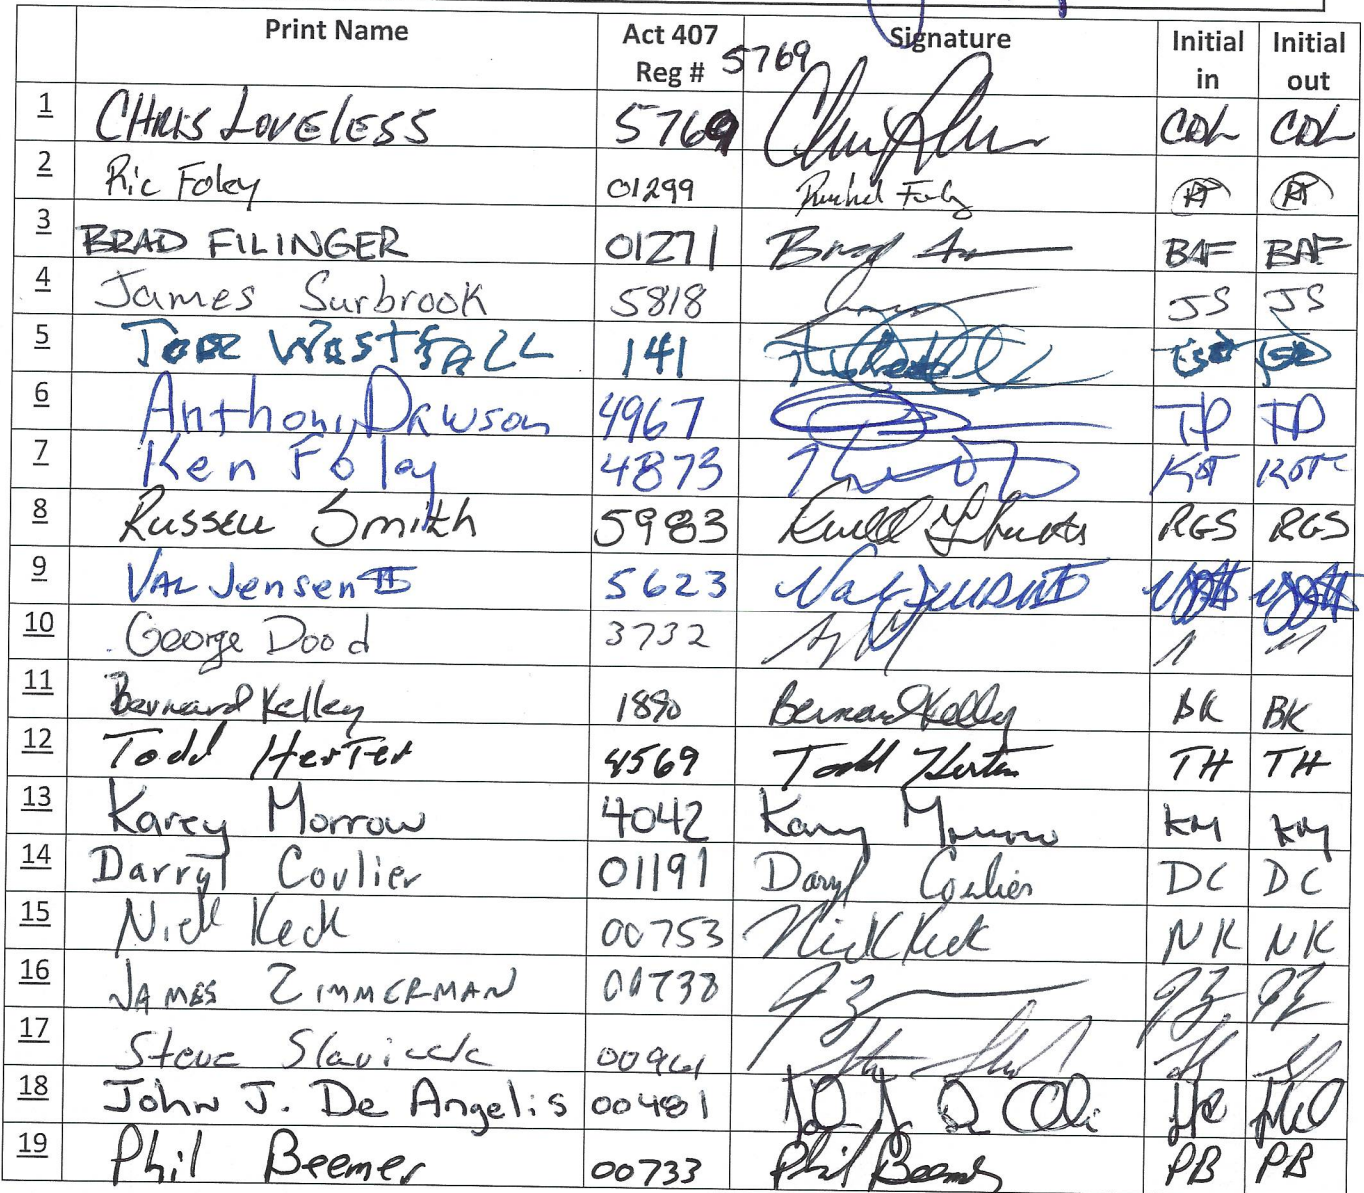 Print Name Act 407 Reg # Signature Initial in Initial out
5769
1 CHRIS LOVELESS 5769 CDL CDL
2 Ric Foley 01299 RF RF
3 BRAD FILINGER 01271 Brad BAF BAF
4 James Surbrook 5818 JS JS
5 WESTFALL 141
6 Anthony Dawson 4967 TD TD
7 Ken Foley 4873 KOF KOF
8 Russell Smith 5983 RGS RGS
9 VAL Jensen III 5623 Val Jensen III
10 George Dood 3732
11 Bernard Kelley 1890 Bernard Kelley BK BK
12 Todd Herter 4569 Todd Herter TH TH
13 Karey Morrow 4042 Karey Morrow KM KM
14 Darryl Coulier 01191 Daryl Coulier DC DC
15 Nick Keck 00753 Nick Keck NK NK
16 JAMES ZIMMERMAN 00738 JZ JZ JZ
17 Steve Slavicek
18 John J. De Angelis 00481
19 Phil Beemer 00733 Phil Beemer PB PB